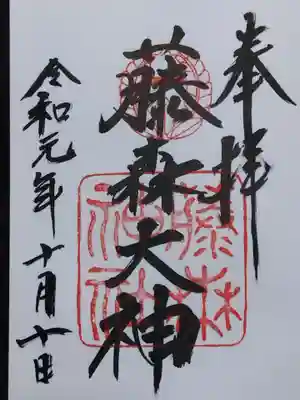 奉拝
藤森大神
令和元年十月十日
藤森
神社